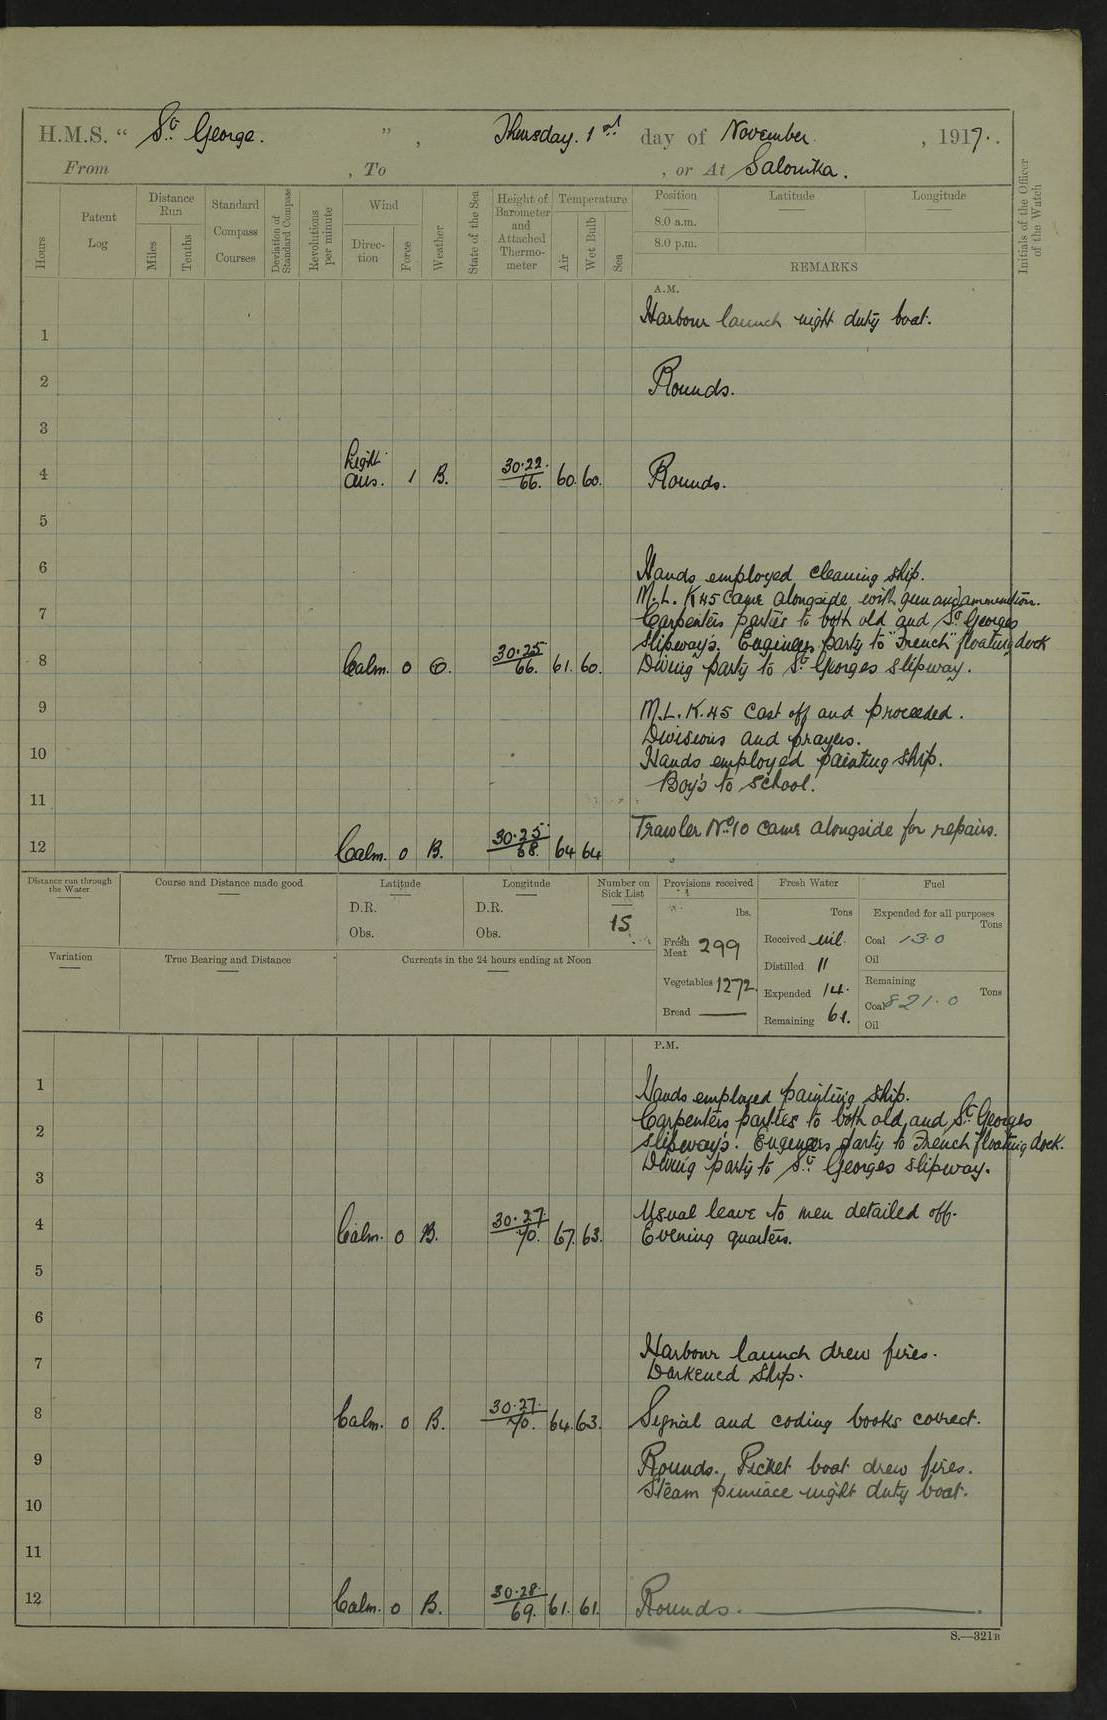 H.M.S. " St George. ", Thursday. 1st day of November. , 1917.
From , To , or At Salonika.
Hours
Patent Log
Distance Run
Miles
Tenths
Standard Compass Courses
Deviation of Standard Compass
Revolutions per minute
Wind
Direction
Force
Weather
State of the Sea
Height of Barometer and Attached Thermometer
Temperature
Air
Wet Bulb
Sea
Position Latitude Longitude
8.0 a.m.
8.0 p.m.
REMARKS
Initials of the Officer of the Watch
A.M.
Harbour launch night duty boat.
1
2 Rounds.
3
Light
4 airs. 1 B. 30.22/66. 60. 60. Rounds.
5
6 Hands employed cleaning ship.
M.L. K45 came alongside with gun and ammunition.
7 Carpenters parties to both old and St Georges
slipway's. Engineers party to "French" floating dock
8 Calm. 0 O. 30.25/66. 61. 60. Diving party to St Georges slipway.
9 M.L. K.45 cast off and proceeded.
Divisions and prayers.
10 Hands employed painting ship.
Boy's to school.
11
Trawler No.10 came alongside for repairs.
12 Calm. 0 B. 30.25/68. 64 64
Distance run through the Water
Course and Distance made good
Latitude
D.R.
Obs.
Longitude
D.R.
Obs.
Number on Sick List
15
Provisions received
lbs.
Fresh Meat 299
Vegetables 1272.
Bread —
Fresh Water
Tons
Received nil.
Distilled "
Expended 14.
Remaining 61.
Fuel
Expended for all purposes
Tons
Coal 13.0
Oil
Remaining
Tons
Coal 821.0
Oil
Variation
True Bearing and Distance
Currents in the 24 hours ending at Noon
P.M.
1 Hands employed painting ship.
Carpenters parties to both old and St Georges
2 slipway's. Engineers party to French floating dock.
3 Diving party to St Georges slipway.
Usual leave to men detailed off.
4 Calm. 0 B. 30.27./70. 67. 63. Evening quarters.
5
6
7 Harbour launch drew fires.
Darkened ship.
8 Calm. 0 B. 30.27./70. 64. 63. Signal and coding books correct.
9 Rounds. Picket boat drew fires.
Steam pinnace night duty boat.
10
11
12 Calm. 0 B. 30.28./69. 61. 61. Rounds.
S.—321B